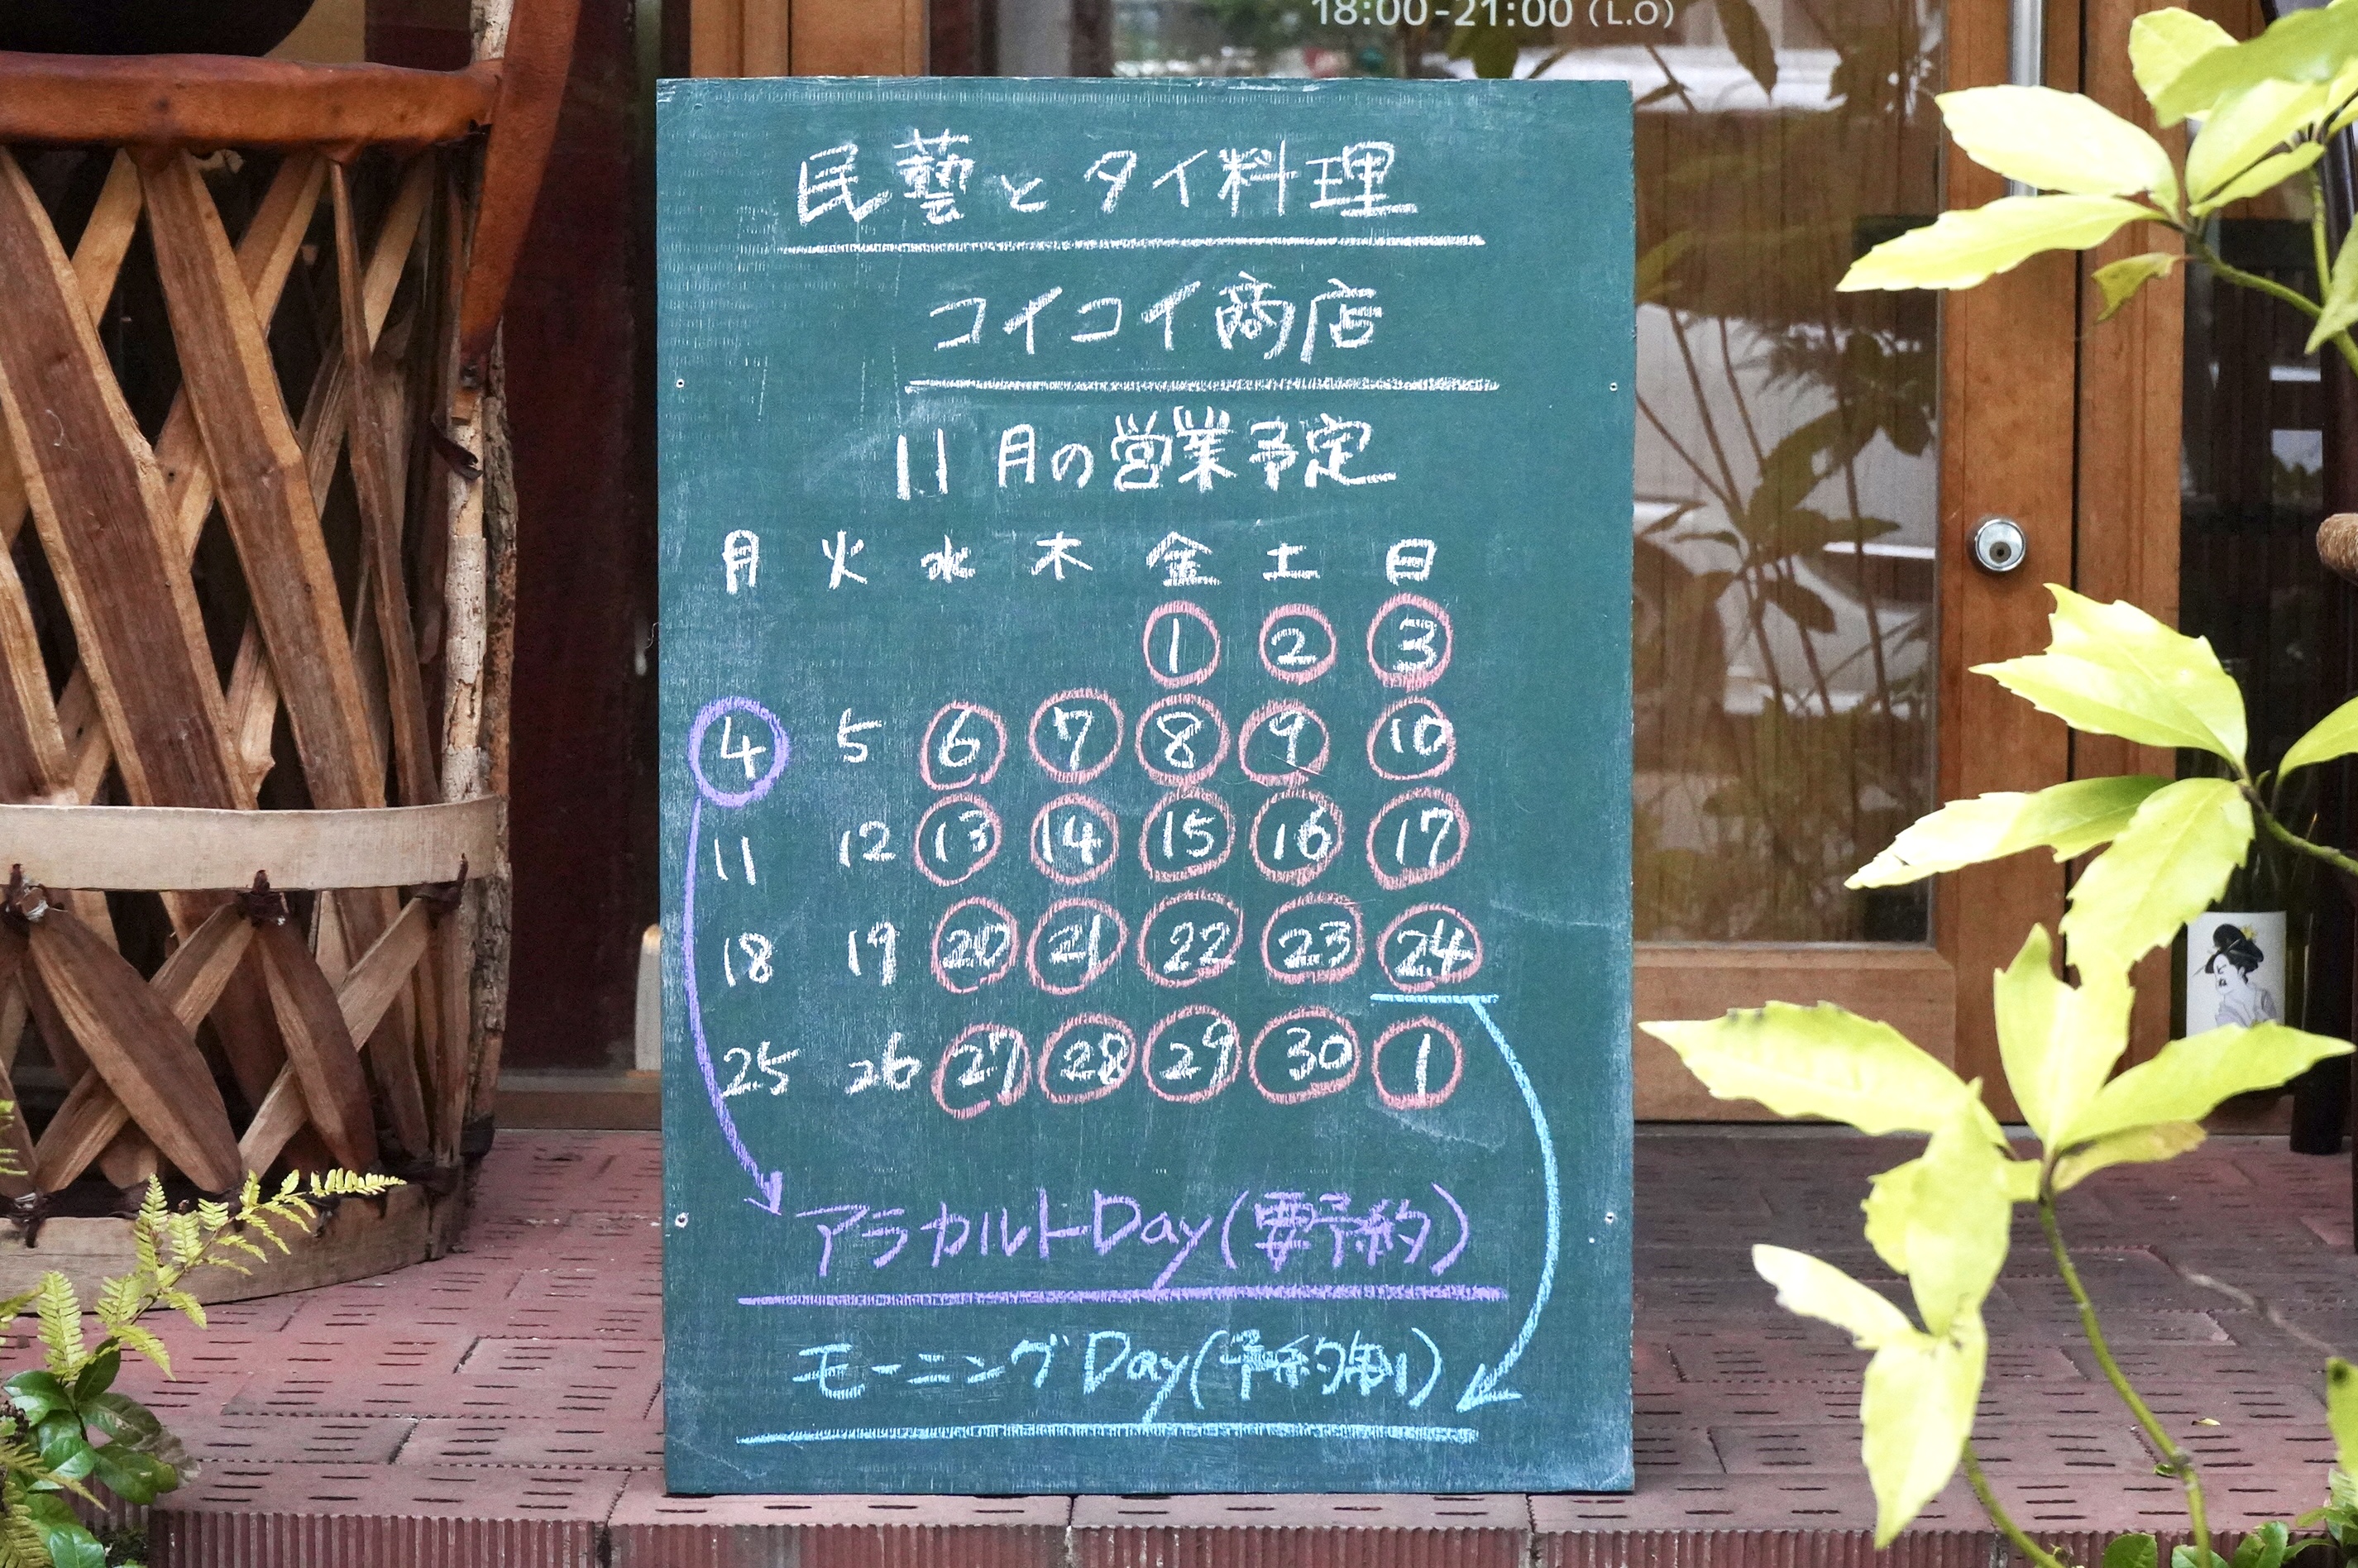 18:00-21:00 (L.O)
民藝とタイ料理
コイコイ商店
11月の営業予定
月 火 水 木 金 土 日
1 2 3
4 5 6 7 8 9 10
11 12 13 14 15 16 17
18 19 20 21 22 23 24
25 26 27 28 29 30 1
アラカルトDay(要予約)
モーニングDay(予約制)